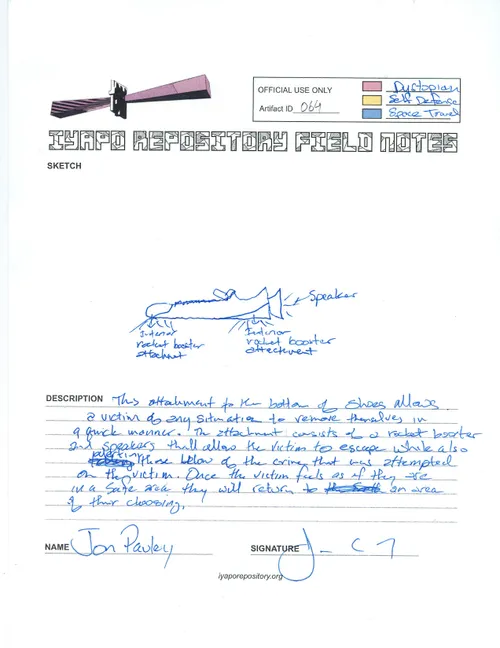 OFFICIAL USE ONLY
Dystopian
Self Defense
Artifact ID 064
Space Travel
IYAPO REPOSITORY FIELD NOTES
SKETCH
Speaker
Interior
rocket booster
attachment
Interior
rocket booster
attachment
DESCRIPTION This attachment to the bottom of shoes allows
a victim of any situation to remove themselves in
a quick manner. The attachment consists of a rocket booster
and speakers thall allow the victim to escape while also
alerting those below of the crime that was attempted
on the victim. Once the victim feels as if they are
in a safe area they will return to an area
of their choosing.
NAME Jon Pauley
SIGNATURE
iyaporepository.org